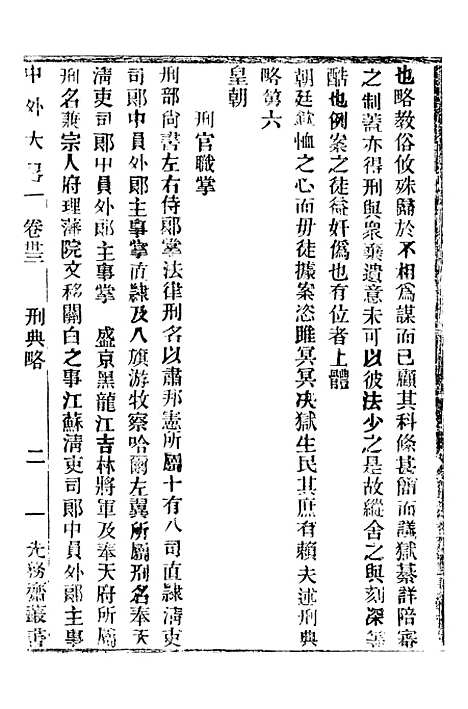 也略教俗攸殊歸於不相為謀而已顧其科條甚簡而讞獄綦詳陪審
之制蓋亦得刑與衆棄遺意未可以彼法少之是故縱舍之與刻深等
酷也例案之徒益奸僞也有位者上體
朝廷欽恤之心而毋徒據案恣睢冥冥決獄生民其庶有賴夫述刑典
略第六
皇朝
刑官職掌
刑部尚書左右侍郎掌法律刑名以肅邦憲所屬十有八司直隷淸吏
司郎中員外郎主事掌直隷及八旗游牧察哈爾左翼所屬刑名奉天
淸吏司郎中員外郎主事掌 盛京黑龍江吉林將軍及奉天府所屬
刑名兼宗人府理藩院文移關白之事江蘇淸吏司郎中員外郎主事
中外大略 卷卅三 刑典略 二 光務齋叢書